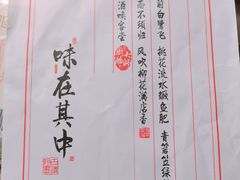 前白鹭飞 桃花流水鳜鱼肥 青箬笠绿
雨不须归 风吹柳花满店香
酒唤客尝
味在其中